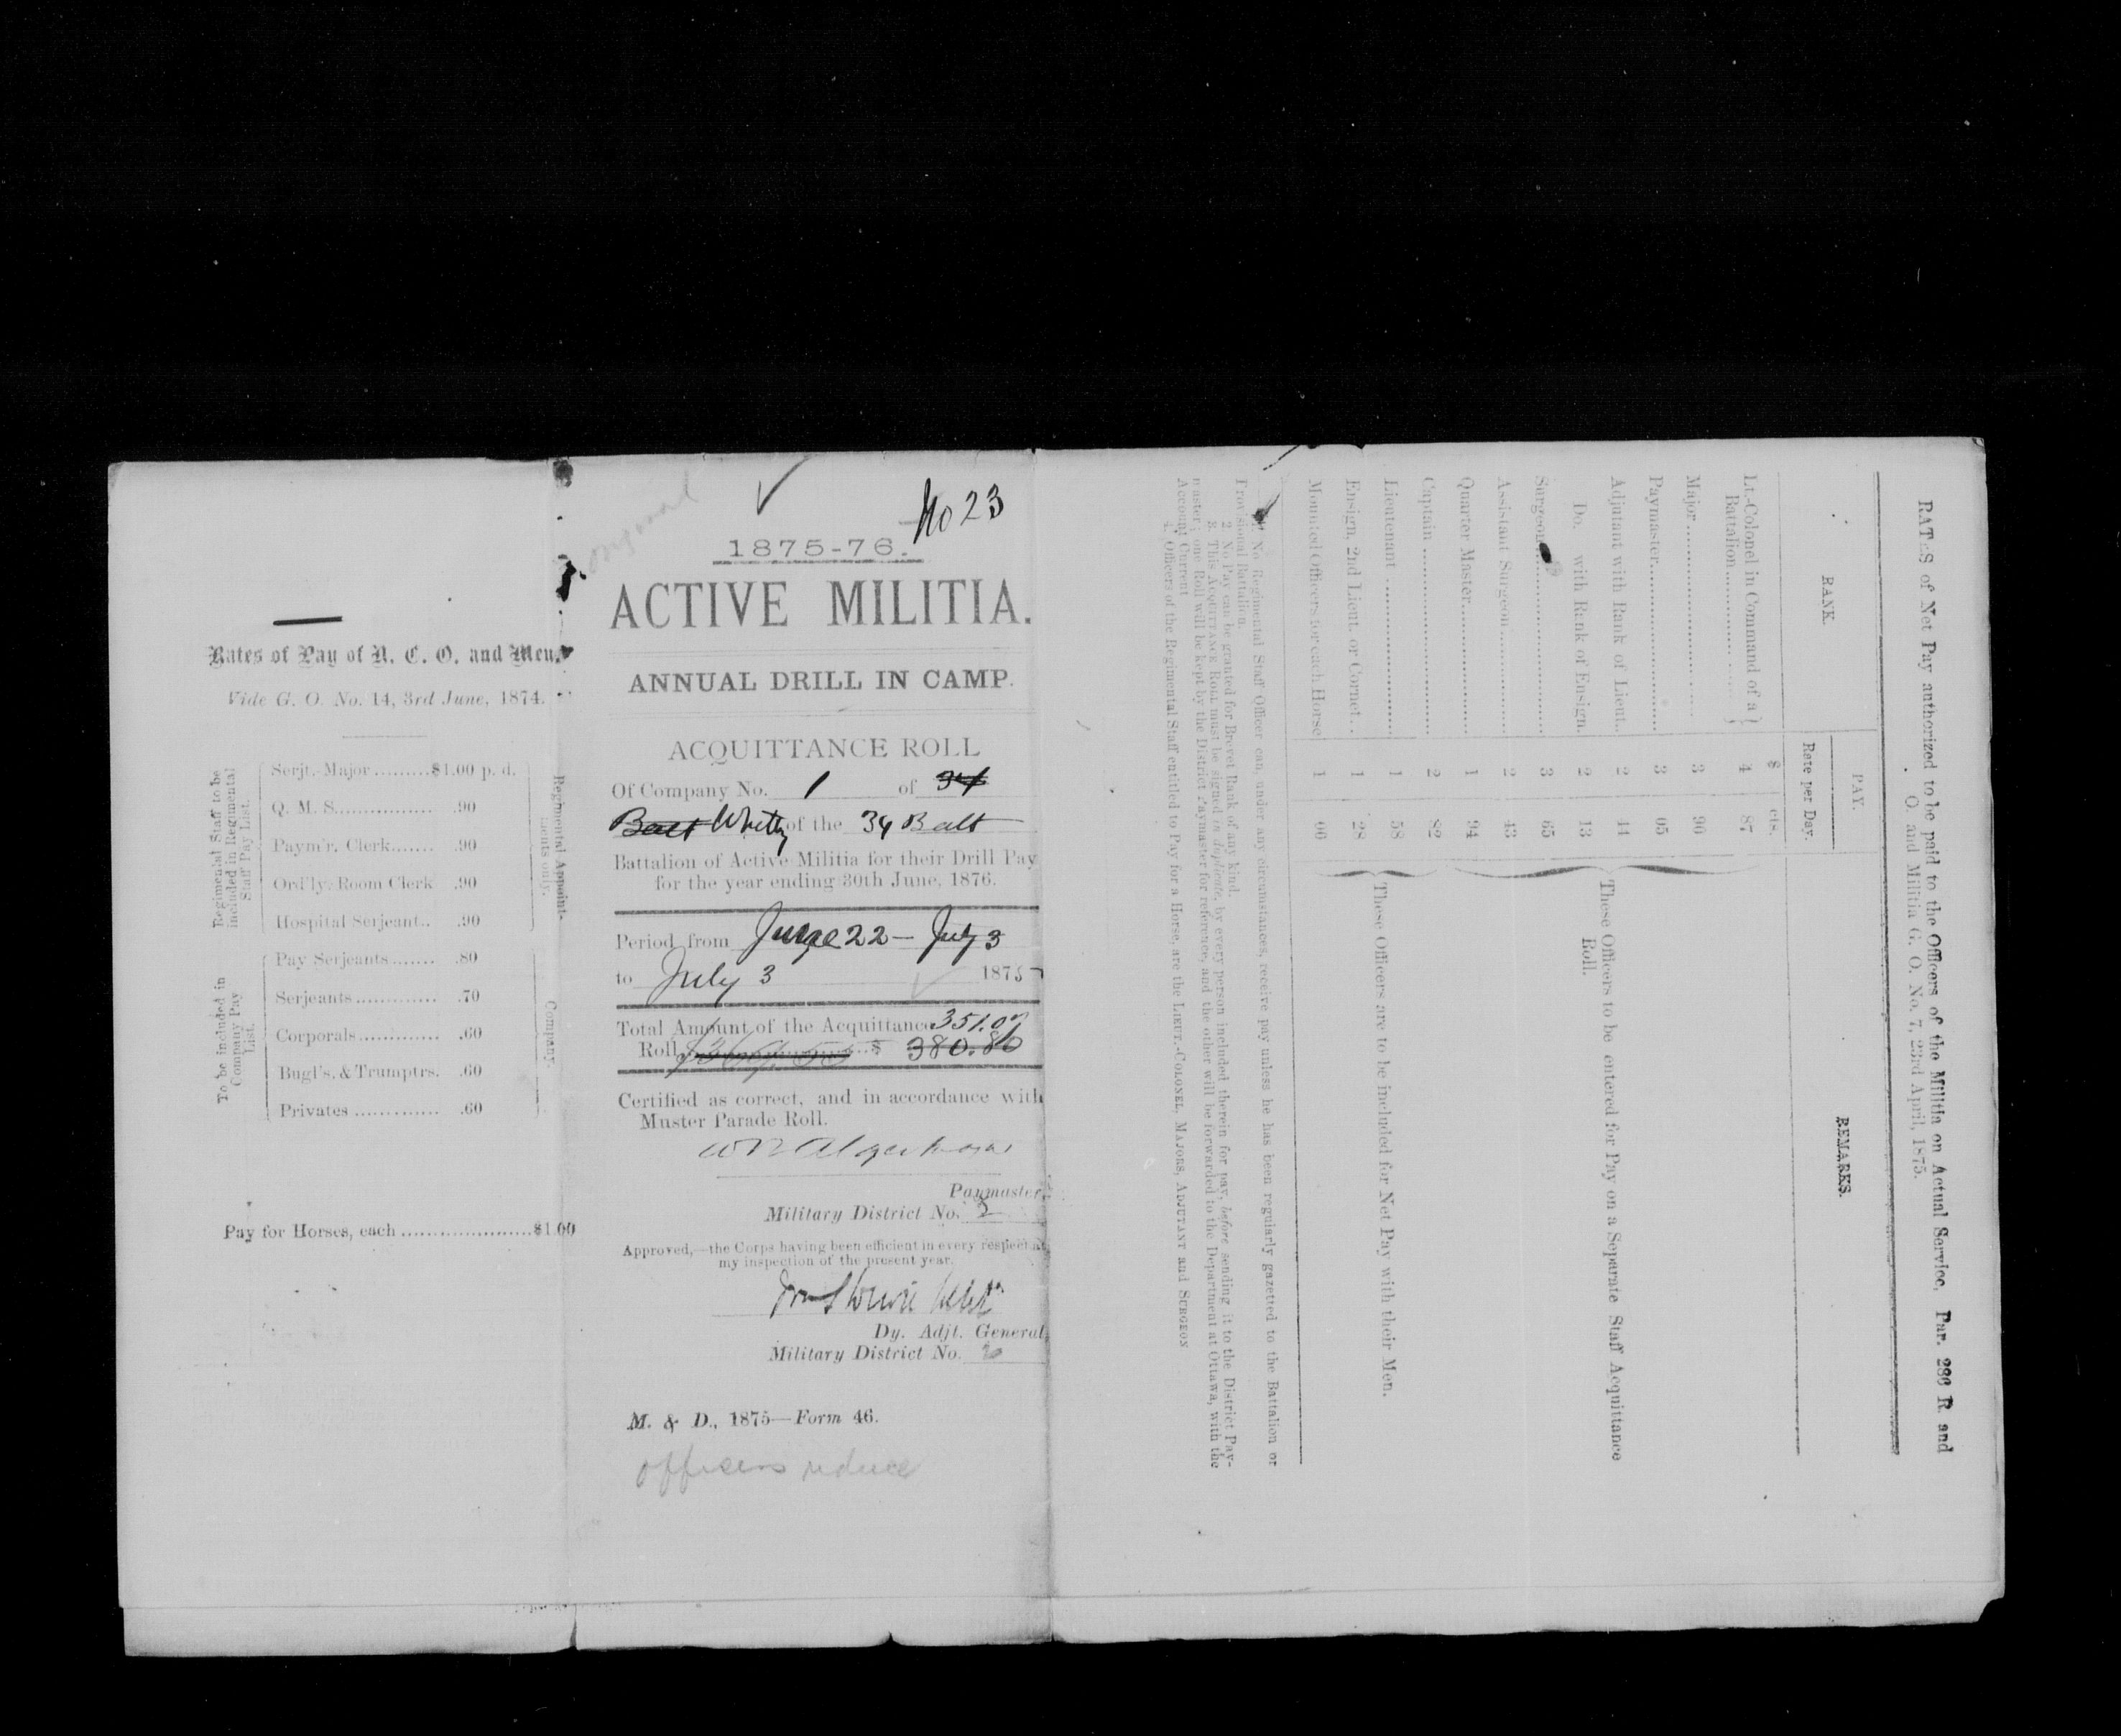 Rates of Pay of N. C. O. and Men.
Vide G. O. No. 14, 3rd June, 1874.
Regimental Staff to be included in Regimental Staff Pay List.
Serjt.-Major.........$1.00 p. d.
Q. M. S................ .90
Paym'r. Clerk....... .90
Ord'ly. Room Clerk .90
Hospital Serjeant.. .90
Regimental Appointments only.
To be included in Company Pay List.
Pay Serjeants....... .80
Serjeants............. .70
Corporals............. .60
Bugl's. & Trumptrs. .60
Privates .............. .60
Company.
Pay for Horses, each ......................$1.00
original
No 23
1875-76.
ACTIVE MILITIA.
ANNUAL DRILL IN CAMP.
ACQUITTANCE ROLL
Of Company No. 1 of 34
Batt Whitby of the 34 Batt
Battalion of Active Militia for their Drill Pay
for the year ending 30th June, 1876.
Period from June 22 – July 3
to July 3 1875
Total Amount of the Acquittance 351.07
Roll $ 380.86
Certified as correct, and in accordance with
Muster Parade Roll.
Paymaster,
Military District No. 2
Approved,—the Corps having been efficient in every respect at
my inspection of the present year.
Dy. Adjt. General,
Military District No.
M. & D., 1875—Form 46.
officers reduce
RATES of Net Pay authorized to be paid to the Officers of the Militia on Actual Service, Par. 286 R and
O and Militia G. O. No. 7, 23rd April, 1875.
RANK.
PAY.
Rate per Day.
REMARKS.
$ cts.
Lt.-Colonel in Command of a
Battalion .................. 4 87
Major............................ 3 90
Paymaster...................... 3 05
Adjutant with Rank of Lieut.. 2 44
Do. with Rank of Ensign. 2 13
Surgeon......................... 3 65
Assistant Surgeon............ 2 43
Quarter Master................ 1 94
These Officers to be entered for Pay on a Separate Staff Acquittance
Roll.
Captain ......................... 2 82
Lieutenant ..................... 1 58
Ensign, 2nd Lieut. or Cornet.. 1 28
Mounted Officers for each Horse 1 00
These Officers are to be included for Net Pay with their Men.
No Regimental Staff Officer can, under any circumstances, receive pay unless he has been regularly gazetted to the Battalion or
Provisional Battalion.
2. No Pay can be granted for Brevet Rank of any kind.
3. This ACQUITTANCE ROLL must be signed in duplicate, by every person included therein for pay, before sending it to the District Pay-
master; one Roll will be kept by the District Paymaster for reference, and the other will be forwarded to the Department at Ottawa, with the
Account Current
4. Officers of the Regimental Staff entitled to Pay for a Horse, are the LIEUT.-COLONEL, MAJORS, ADJUTANT and SURGEON